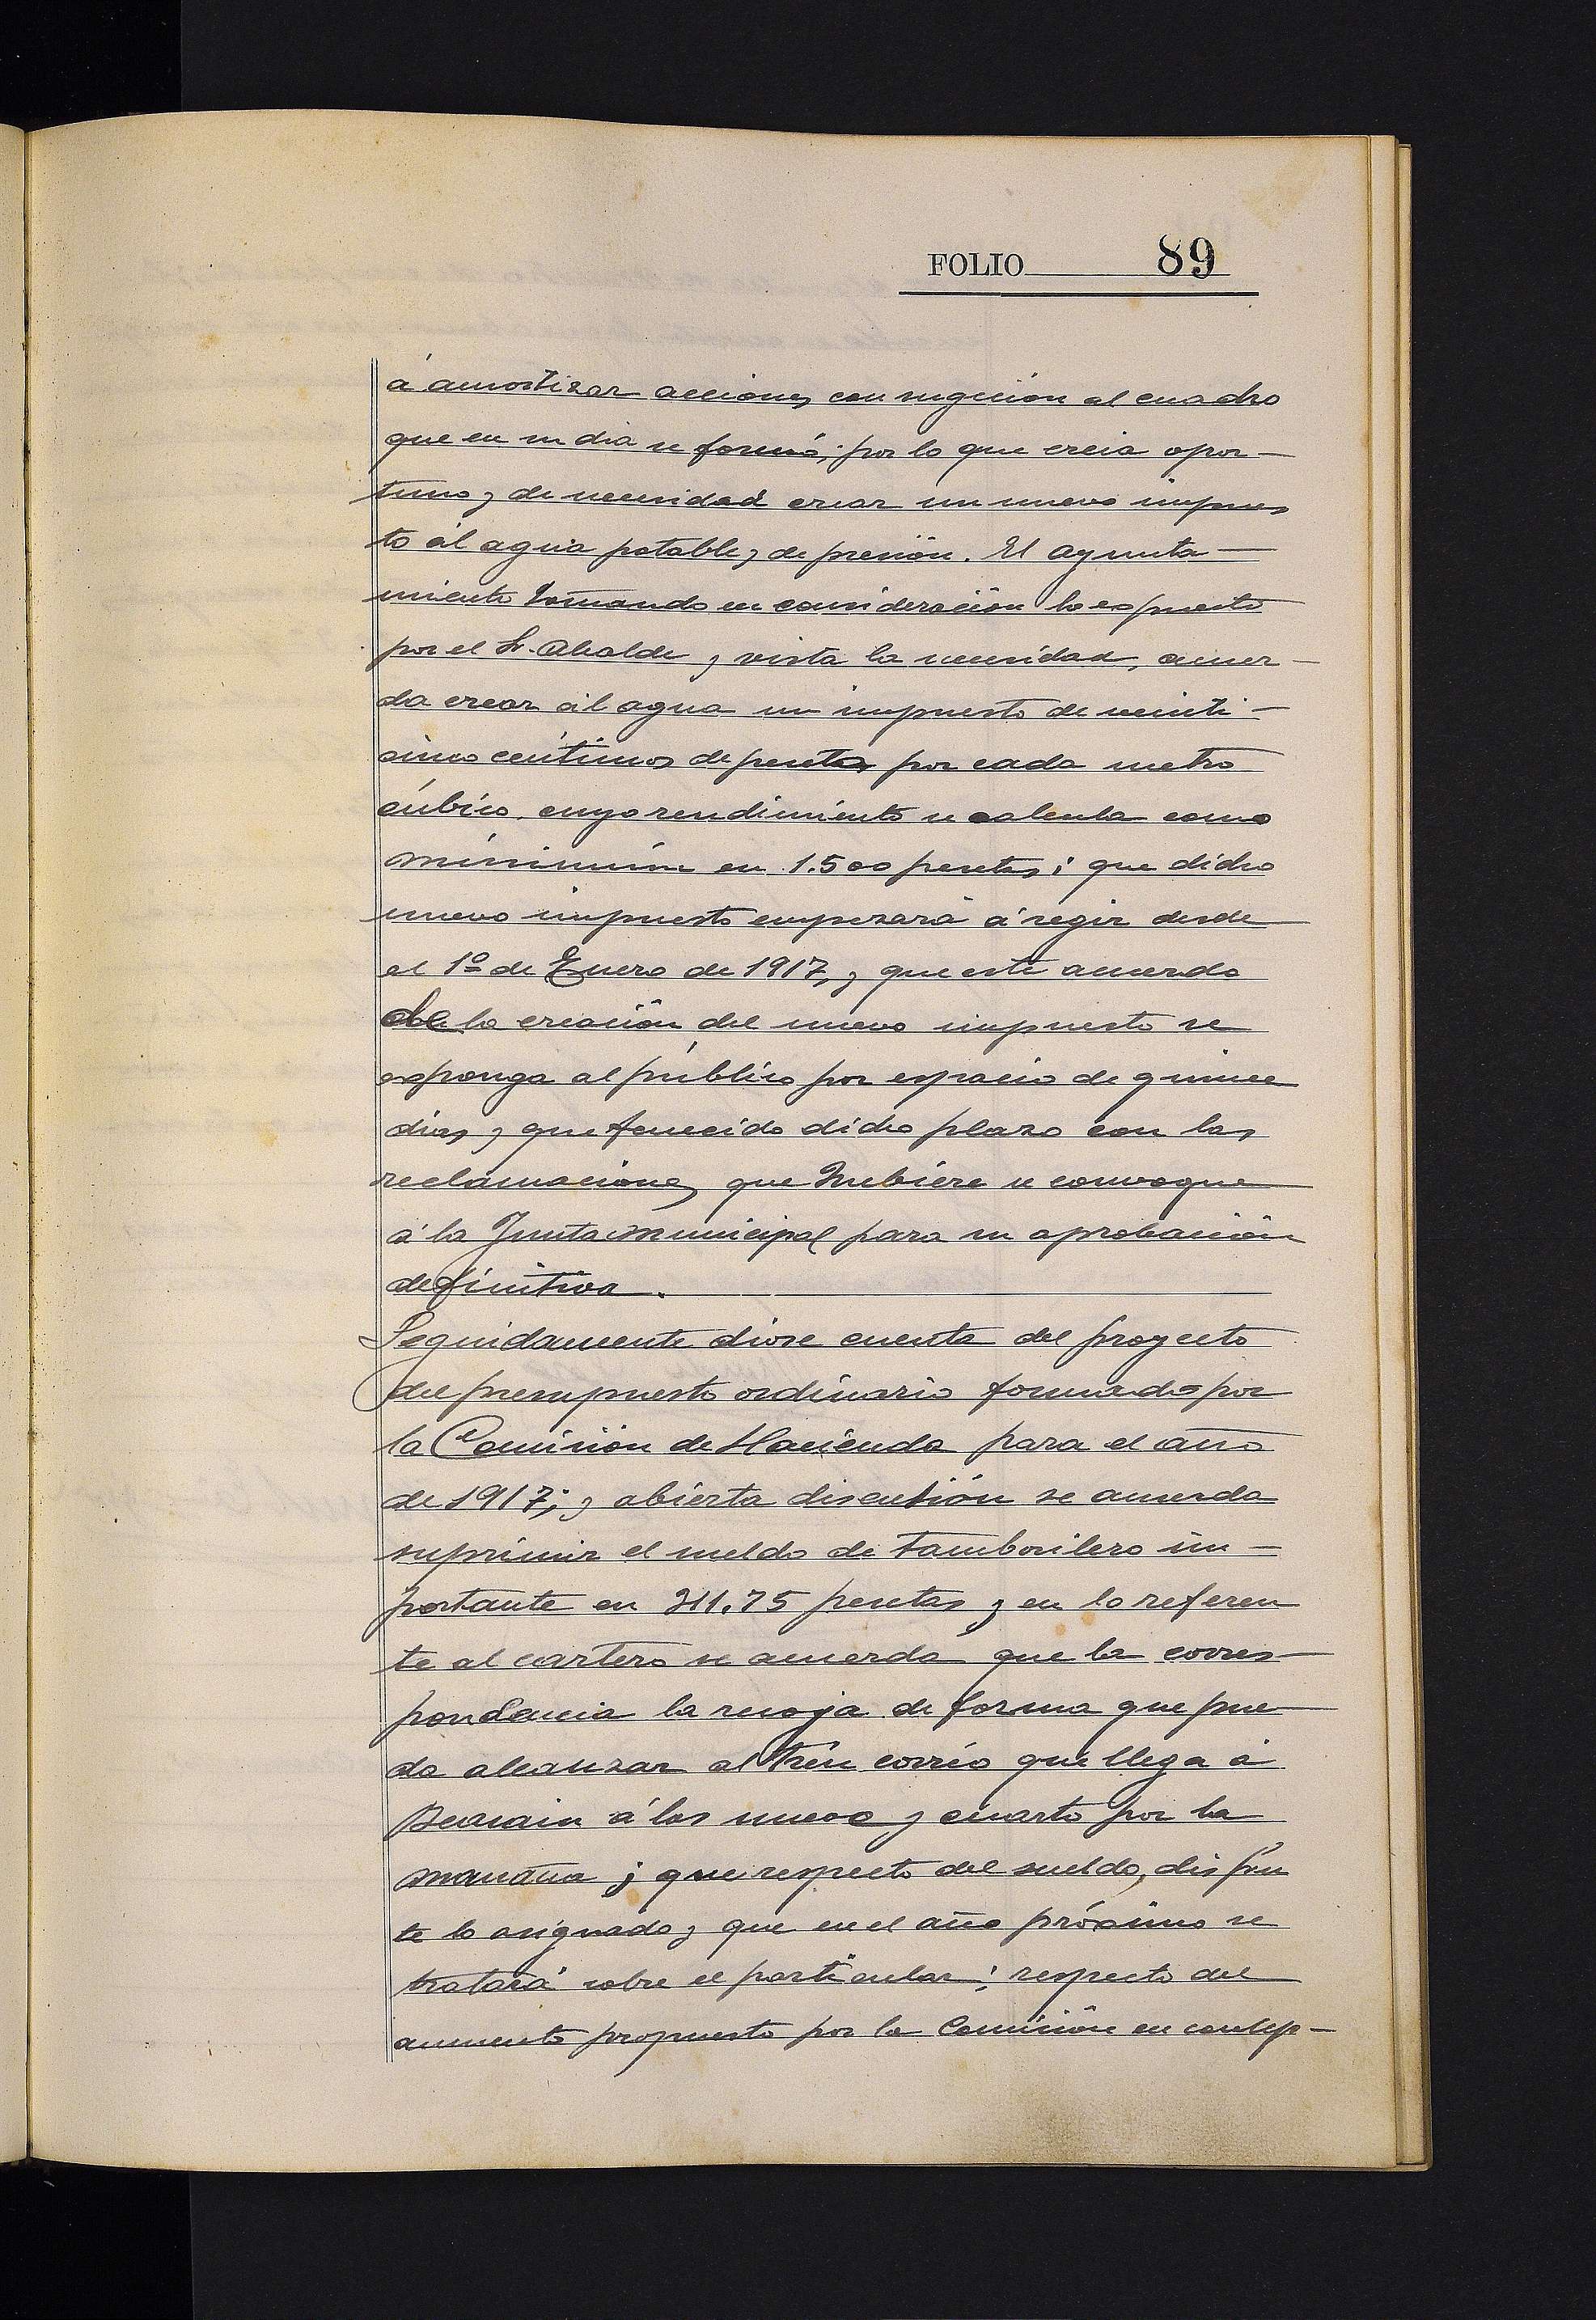 FOLIO 89
á amortizar acciones con sugeción al cuadro
que en su dia se formó; por lo que creia opor-
tuno y de necesidad crear un nuevo impues
to ál agua potable y de presión. El ayunta-
miento tomando en consideración lo expuesto
por el Sr. Alcalde y vista la necesidad, acuer-
da crear ál agua un impuesto de veinti-
cinco céntimos de peseta por cada metro
cúbico, cuyo rendimiento se calcula como
minimún en 1.500 pesetas; que dicho
nuevo impuesto empezará á regir desde
el 1º de Enero de 1917, y que este acuerdo
de la creación del nuevo impuesto se
exponga al público por espacio de quince
dias y que fenecido dicho plazo con las
reclamaciones que hubiere se convoque
á la Junta municipal para su aprobación
definitiva.
Seguidamente diose cuenta del proyecto
del presupuesto ordinario formado por
la Comisión de Hacienda para el año
de 1917; y abierta discusión se acuerda
suprimir el sueldo de tamborilero im-
portante en 311.75 pesetas y en lo referen
te al cartero se acuerda que la corres-
pondencia la recoja de forma que pue
da alcanzar al trén corréo que llega á
Beasain á las nueve y cuarto por la
mañana; que respecto del sueldo, disfru
te lo asignado y que en el año próximo se
tratará sobre el particular; respecto del
aumento propuesto por la Comisión en concep-